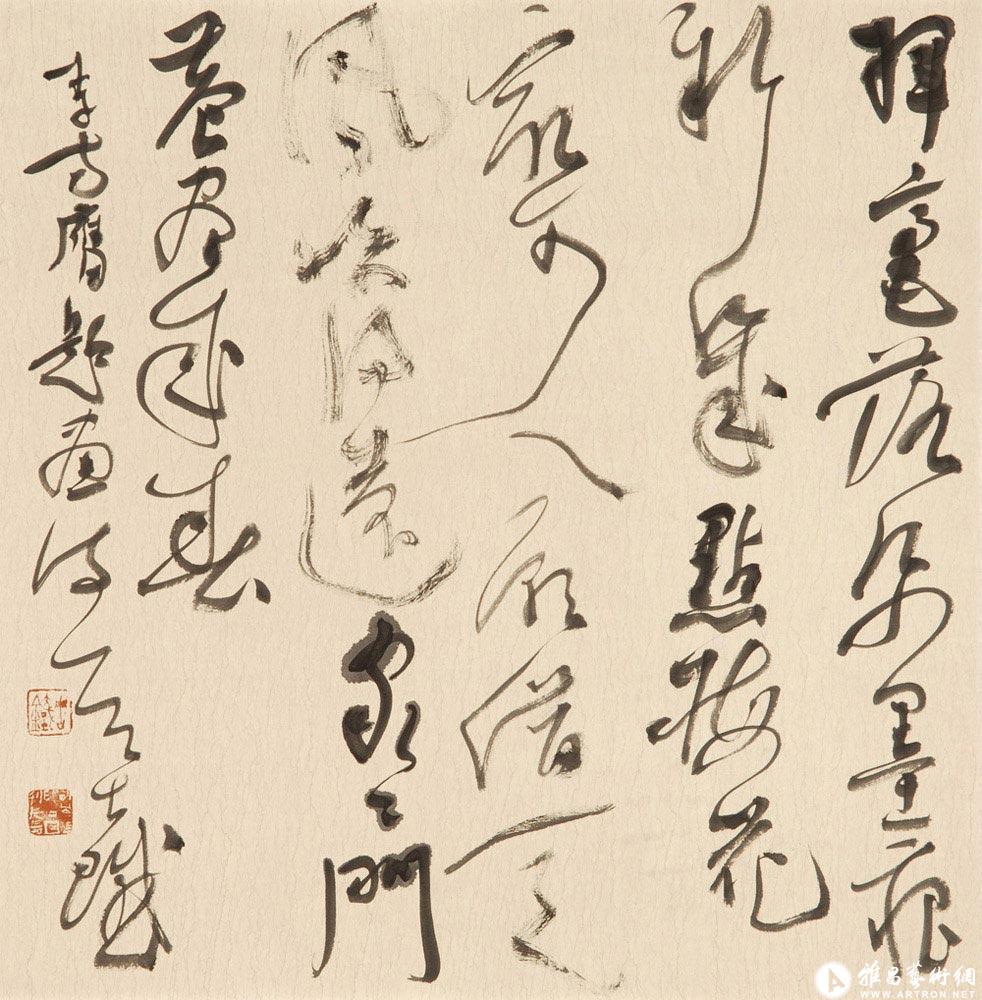 揮毫落紙墨痕
新幾點梅花
最可人願借天
風吹得遠家々門
巷盡成春
李方膺題畫詩
雅昌藝術網
WWW.ARTRON.NET